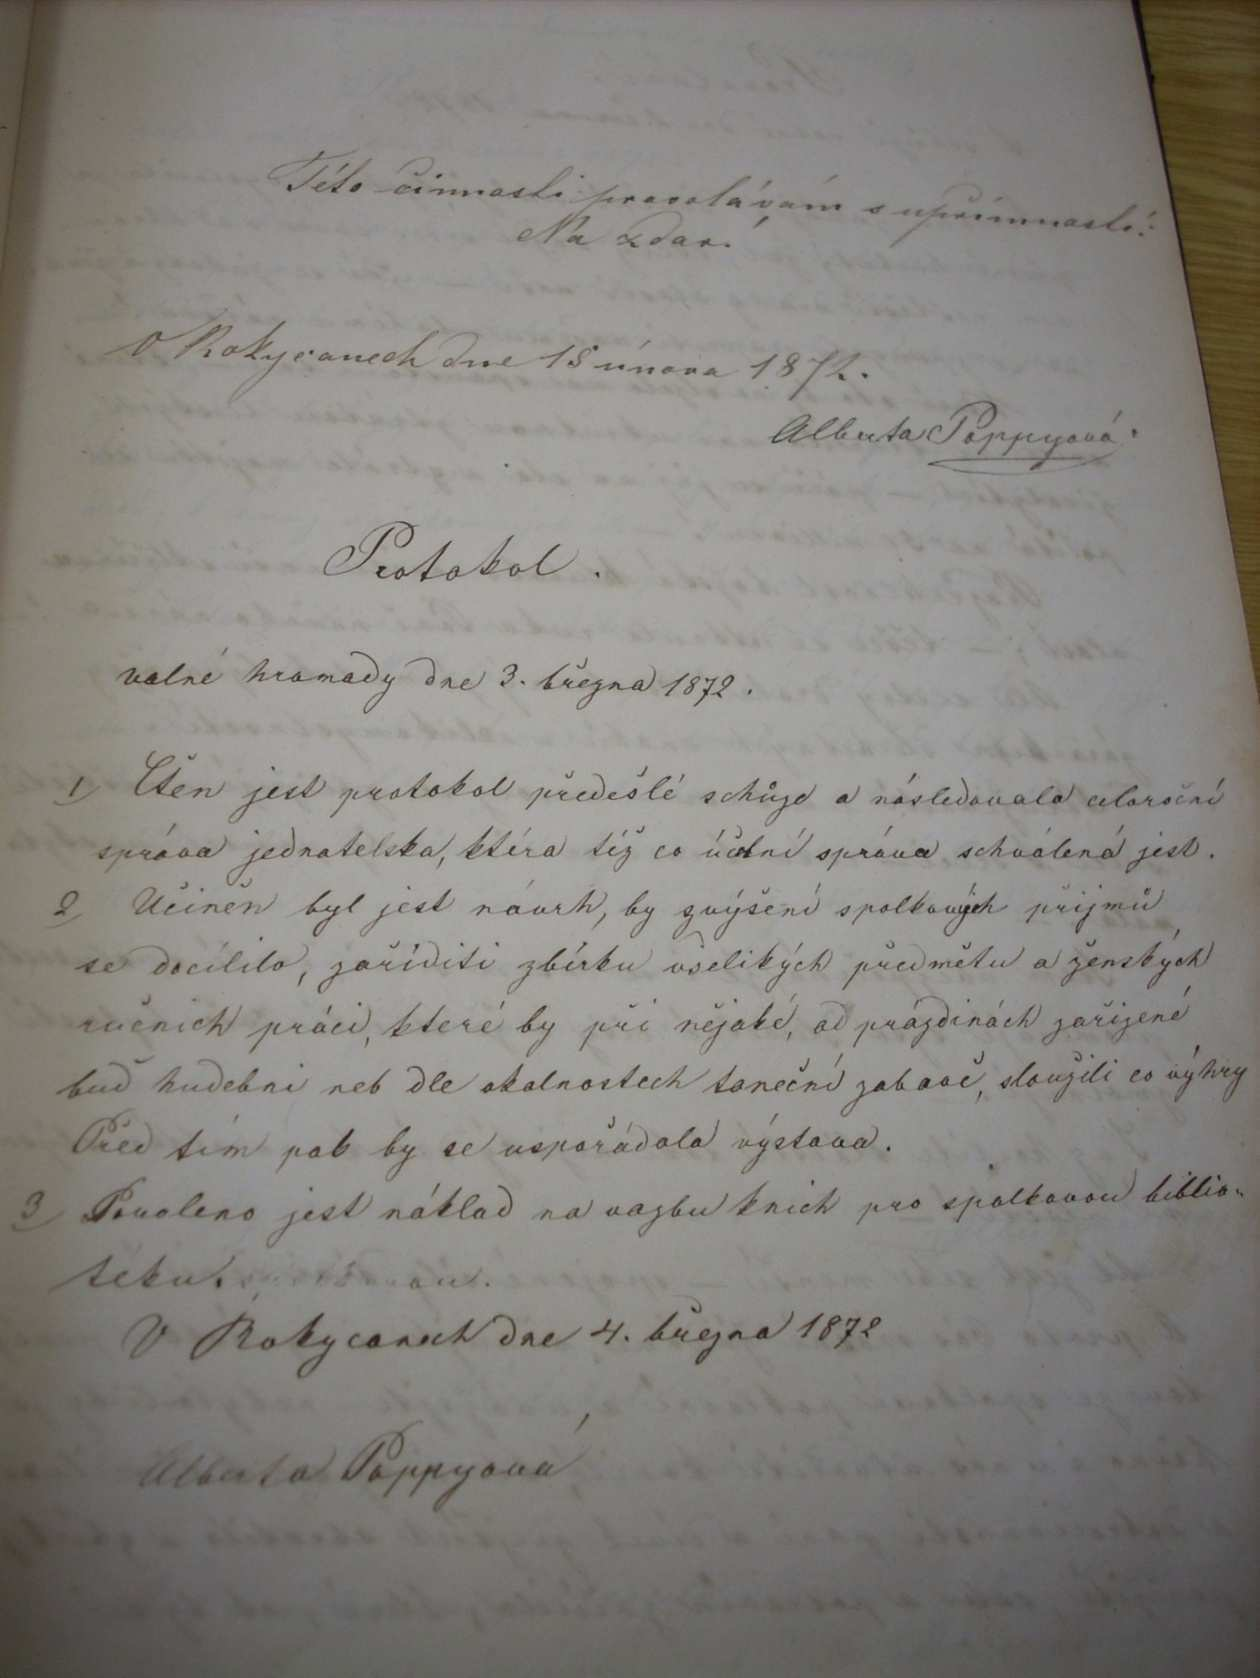 Této činnosti provolávám s upřímností:
Na zdar!
V Rokycanech dne 18 února 1872.
Alberta Poppyová.
Protokol.
valné hromady dne 3. března 1872.
1 Čten jest protokol předešlé schůze a následovala celoroční
správa jednatelska, ktéra též co účtní správa schválená jest.
2 Učiněn byl jest návrh, by zvýšení spolkových přijmů
se docílilo, zaříditi zbírku všelikých předmětu a ženských
ručnich práci, které by při nějaké, od prázdinách zařizené
buď hudebni neb dle okolnostech taneční zabavě, sloužili co výhry
Před tím pak by se uspořádala výstava.
3 Povoleno jest náklad na vazbu knich pro spolkovou biblio-
téku.
V Rokycanech dne 4. března 1872
Alberta Poppyová